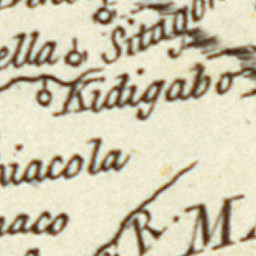 ella Sitago
Kidigabo
niacola
naco
R. M